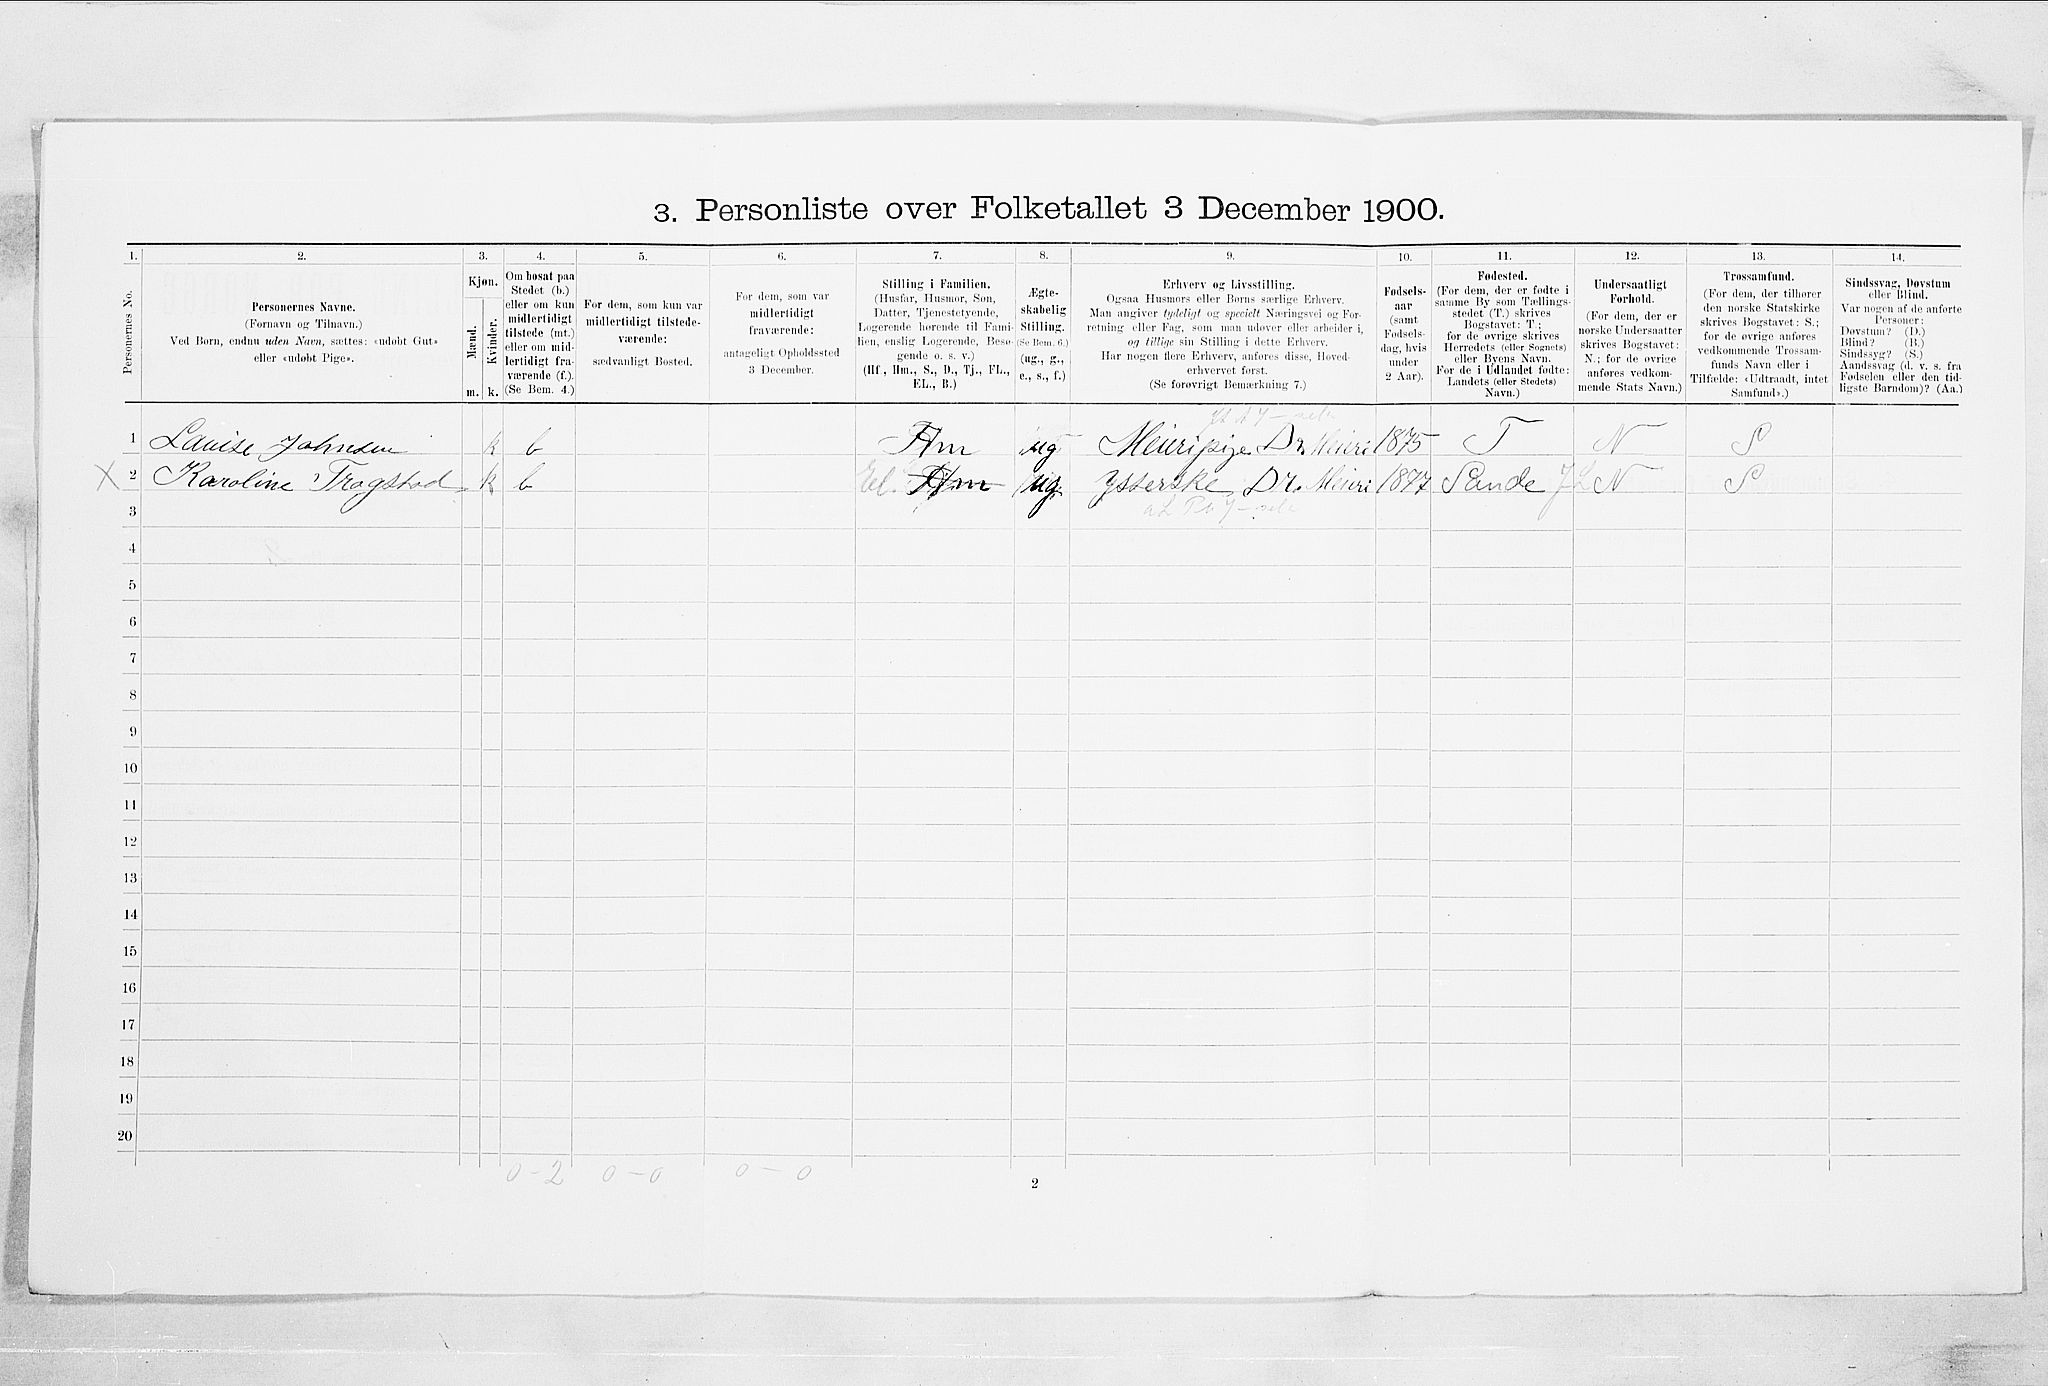 3. Personliste over Folketallet 3 December 1900.
1. 2. 3. 4. 5. 6. 7. 8. 9. 10. 11. 12. 13. 14.
Personernes No.
Personernes Navne.
(Fornavn og Tilnavn.)
Ved Børn, endnu uden Navn, sættes: «udøbt Gut»
eller «udøbt Pige».
Kjøn.
Mænd.
Kvinder.
m. k.
Om bosat paa
Stedet (b.)
eller om kun
midlertidigt
tilstede (mt.)
eller om mid-
lertidigt fra-
værende (f.).
(Se Bem. 4.)
For dem, som kun var
midlertidigt tilstede-
værende:
sædvanligt Bosted.
For dem, som var
midlertidigt
fraværende:
antageligt Opholdssted
3 December.
Stilling i Familien.
(Husfar, Husmor, Søn,
Datter, Tjenestetyende,
Logerende hørende til Fami-
lien, enslig Logerende, Besø-
gende o. s. v.)
(Hf., Hm., S., D., Tj., FL.,
EL., B.)
Ægte-
skabelig
Stilling.
(Se Bem. 6.)
(ug., g.,
e., s., f.)
Erhverv og Livsstilling.
Ogsaa Husmors eller Børns særlige Erhverv.
Man angiver tydeligt og specielt Næringsvei og For-
retning eller Fag, som man udøver eller arbeider i,
og tillige sin Stilling i dette Erhverv.
Har nogen flere Erhverv, anføres disse, Hoved-
erhvervet først.
(Se forøvrigt Bemærkning 7.)
Fødsels-
aar
(samt
Fødsels-
dag, hvis
under
2 Aar).
Fødested.
(For dem, der er fødte i
samme By som Tællings-
stedet (T.) skrives
Bogstavet: T.;
for de øvrige skrives
Herredets (eller Sognets)
eller Byens Navn.
For de i Udlandet fødte:
Landets (eller Stedets)
Navn.)
Undersaatligt
Forhold.
(For dem, der er
norske Undersaatter
skrives Bogstavet:
N.; for de øvrige
anføres vedkom-
mende Stats Navn.)
Trossamfund.
(For dem, der tilhører
den norske Statskirke
skrives Bogstavet: S.;
for de øvrige anføres
vedkommende Trossam-
funds Navn eller i
Tilfælde: «Udtraadt, intet
Samfund».)
Sindssvag, Døvstum
eller Blind.
Var nogen af de anførte
Personer:
Døvstum? (D.)
Blind? (B.)
Sindssyg? (S.)
Aandssvag (d. v. s. fra
Fødselen eller den tid-
ligste Barndom)? (Aa.)
1 Lauise Johnsen k b Hm ug Meieripige Dr. Meieri 1875 T N S
X 2 Karoline Trogstad k b El. Hm ug. Ysterske Dr. Meieri 1877 Sande JL N S
3
4
5
6
7
8
9
10
11
12
13
14
15
16
17
18
19
20
0-2 0-0 0-0
2